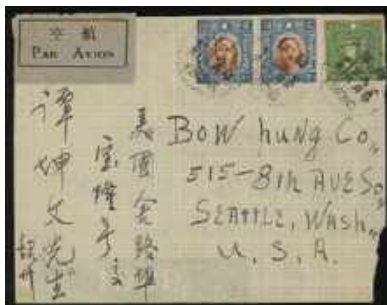 航空
PAR AVION
BOW hung Co,,
515-8th AVE So,,
SEATTLE, WASH,,
U. S. A.
美國舍路埠
宝隆号交
譚坤文先生